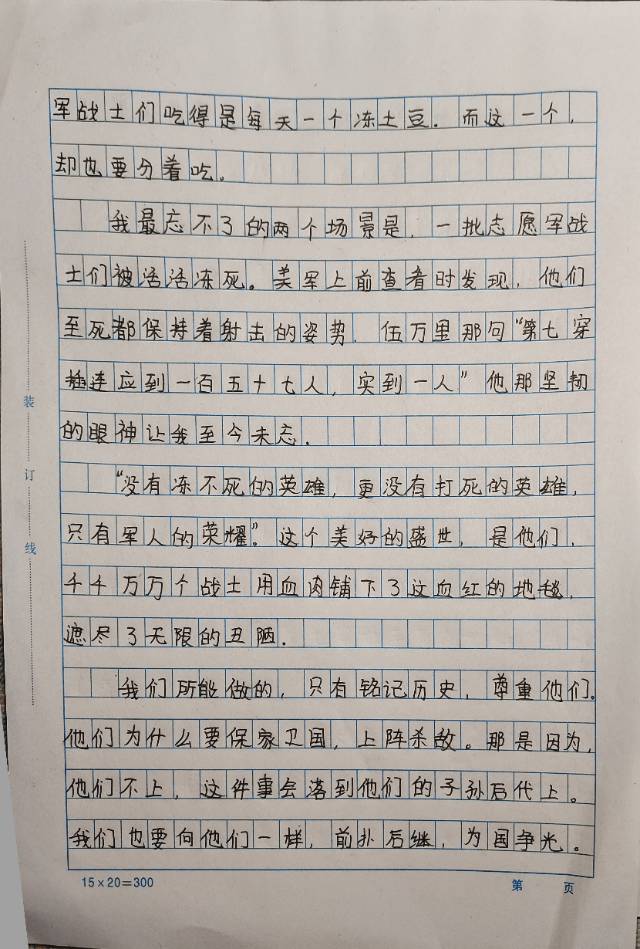 军战士们吃得是每天一个冻土豆.而这一个,
却也要分着吃。
我最忘不了的两个场景是,一批志愿军战
士们被活活冻死。美军上前查看时发现,他们
至死都保持着射击的姿势.伍万里那句“第七穿
插连应到一百五十七人,实到一人”他那坚韧
的眼神让我至今未忘.
“没有冻不死的英雄,更没有打死的英雄,
只有军人的荣耀”。这个美好的盛世,是他们,
千千万万个战士用血肉铺下了这血红的地毯,
遮尽了无限的丑陋.
我们所能做的,只有铭记历史,尊重他们。
他们为什么要保家卫国,上阵杀敌。那是因为,
他们不上,这件事会落到他们的子孙后代上。
我们也要向他们一样,前扑后继,为国争光。
装
订
线
15×20=300
第 页